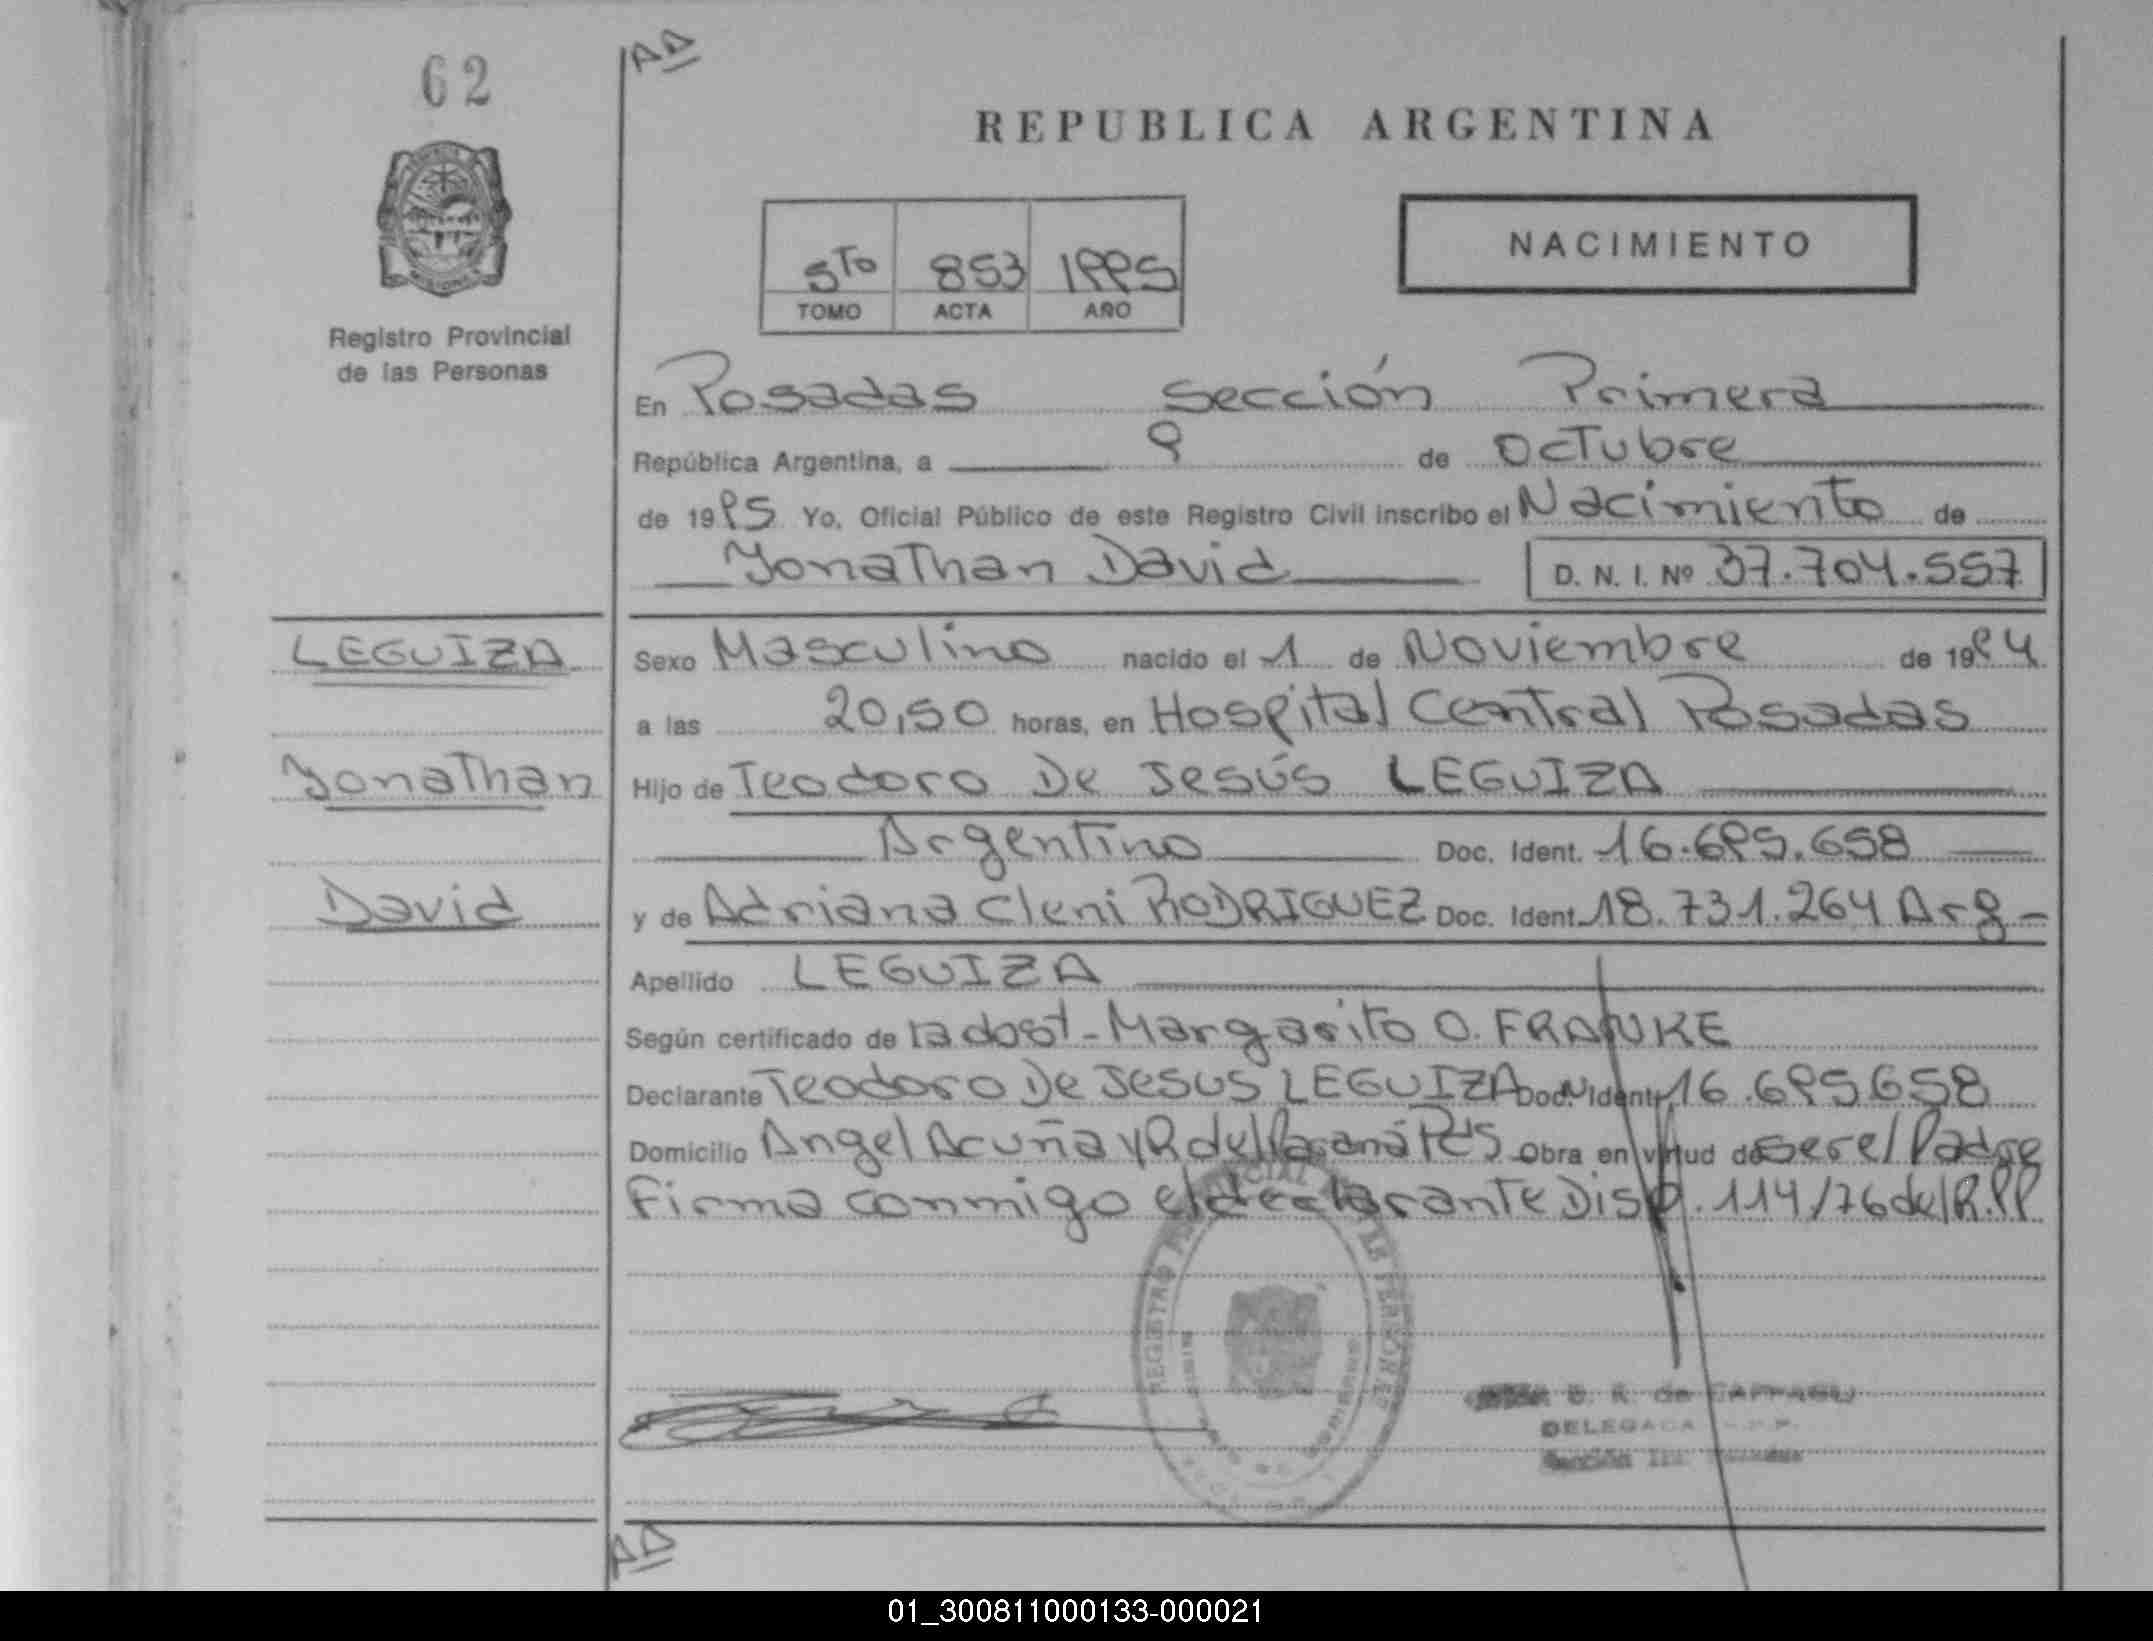 62
AD
REPUBLICA ARGENTINA
5to 853 1995
TOMO ACTA AÑO
NACIMIENTO
Registro Provincial
de las Personas
En Posadas Sección Primera
República Argentina, a 9 de Octubre
de 1995 Yo, Oficial Público de este Registro Civil inscribo el Nacimiento de
Yonathan David D. N. I. Nº 37.704.557
LEGUIZA
Sexo Masculino nacido el 1 de Noviembre de 1994
a las 20,50 horas, en Hospital Central Posadas
Yonathan
Hijo de Teodoro De Jesús LEGUIZA
Argentino Doc. Ident. 16.695.658
David
y de Adriana Cleni RODRIGUEZ Doc. Ident. 18.731.264 Arg
Apellido LEGUIZA
Según certificado de la obst - Margarito O. FRANKE
Declarante Teodoro De Jesus LEGUIZA Doc. Ident. 16.695658
Domicilio Angel Acuña y R del Paraná Pdas Obra en virtud de ser el Padre
Firma conmigo el declarante Disp. 114/76 del R.PP
REGISTRO PERSONAS
DELEGADA
Sección
AD
01_300811000133-000021